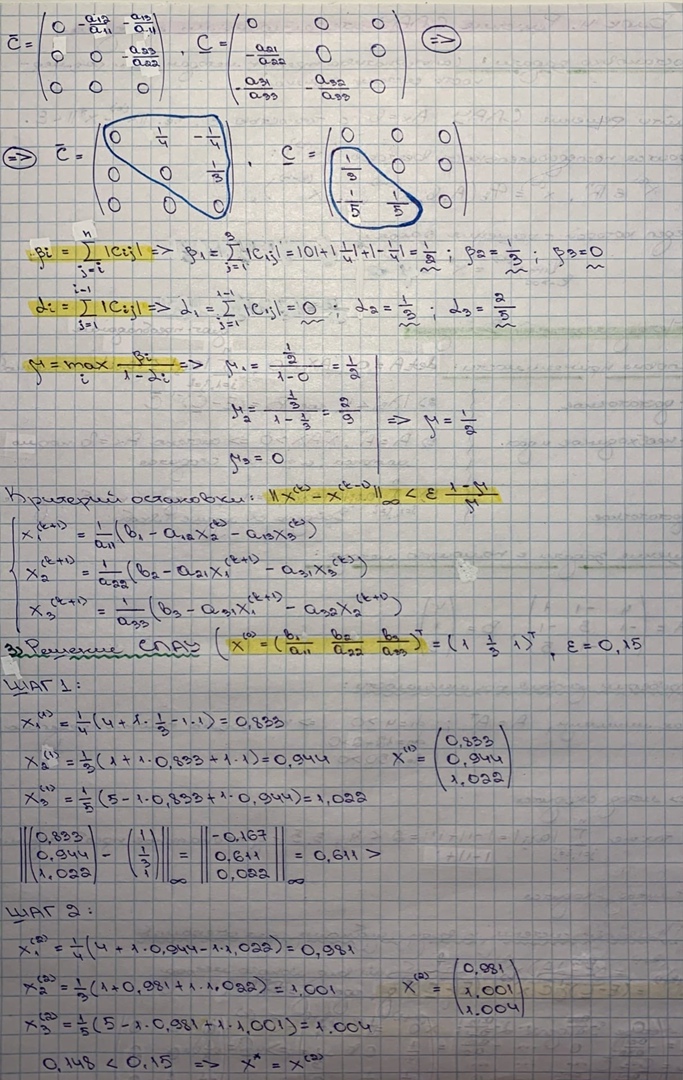 C̄ = ( 0 -a₁₂/a₁₁ -a₁₃/a₁₁ , C = ( 0 0 0 =>
0 0 -a₂₃/a₂₂ -a₂₁/a₂₂ 0 0
0 0 0 ) -a₃₁/a₃₃ -a₃₂/a₃₃ 0 )
=> C̄ = ( 0 1/4 -1/4 , C = ( 0 0 0
0 0 1/3 1/3 0 0
0 0 0 ) -1/5 1/5 0 )
βi = Σ_{j=i}^{n} |Cij| => β₁ = Σ_{j=1}^{3} |C₁j| = |0| + |1/4| + |-1/4| = 1/2 ; β₂ = 1/3 ; β₃ = 0
αi = Σ_{j=1}^{i-1} |Cij| => α₁ = Σ_{j=1}^{1-1} |C₁j| = 0 ; α₂ = 1/3 ; α₃ = 2/5
μ = max_i βi/(1-αi) => μ₁ = (1/2)/(1-0) = 1/2
μ₂ = (1/3)/(1-1/3) = 2/9 => μ = 1/2
μ₃ = 0
Критерий остановки: ||x^(k) - x^(k-1)||∞ < ε (1-μ)/μ
x₁^(k+1) = 1/a₁₁ (b₁ - a₁₂x₂^(k) - a₁₃x₃^(k))
x₂^(k+1) = 1/a₂₂ (b₂ - a₂₁x₁^(k+1) - a₃₁x₃^(k))
x₃^(k+1) = 1/a₃₃ (b₃ - a₃₁x₁^(k+1) - a₃₂x₂^(k+1))
3) Решение СЛАУ ( x^(0) = (b₁/a₁₁ b₂/a₂₂ b₃/a₃₃)^T = (1 1/3 1)^T , ε = 0,15
ШАГ 1:
x₁^(1) = 1/4 (4 + 1·1/3 - 1·1) = 0,833
x₂^(1) = 1/3 (1 + 1·0,833 + 1·1) = 0,944 x^(1) = ( 0,833 0,944 1,022 )
x₃^(1) = 1/5 (5 - 1·0,833 + 1·0,944) = 1,022
|| ( 0,833 0,944 1.022 ) - ( 1 1/3 1 ) ||∞ = || -0,167 0,611 0,022 ||∞ = 0,611 >
ШАГ 2:
x₁^(2) = 1/4 (4 + 1·0,944 - 1·1,022) = 0,981
x₂^(2) = 1/3 (1 + 0,981 + 1·1.022) = 1.001 x^(2) = ( 0,981 1.001 1.004 )
x₃^(2) = 1/5 (5 - 1·0,981 + 1·1,001) = 1.004
0,148 < 0,15 => x* = x^(2)